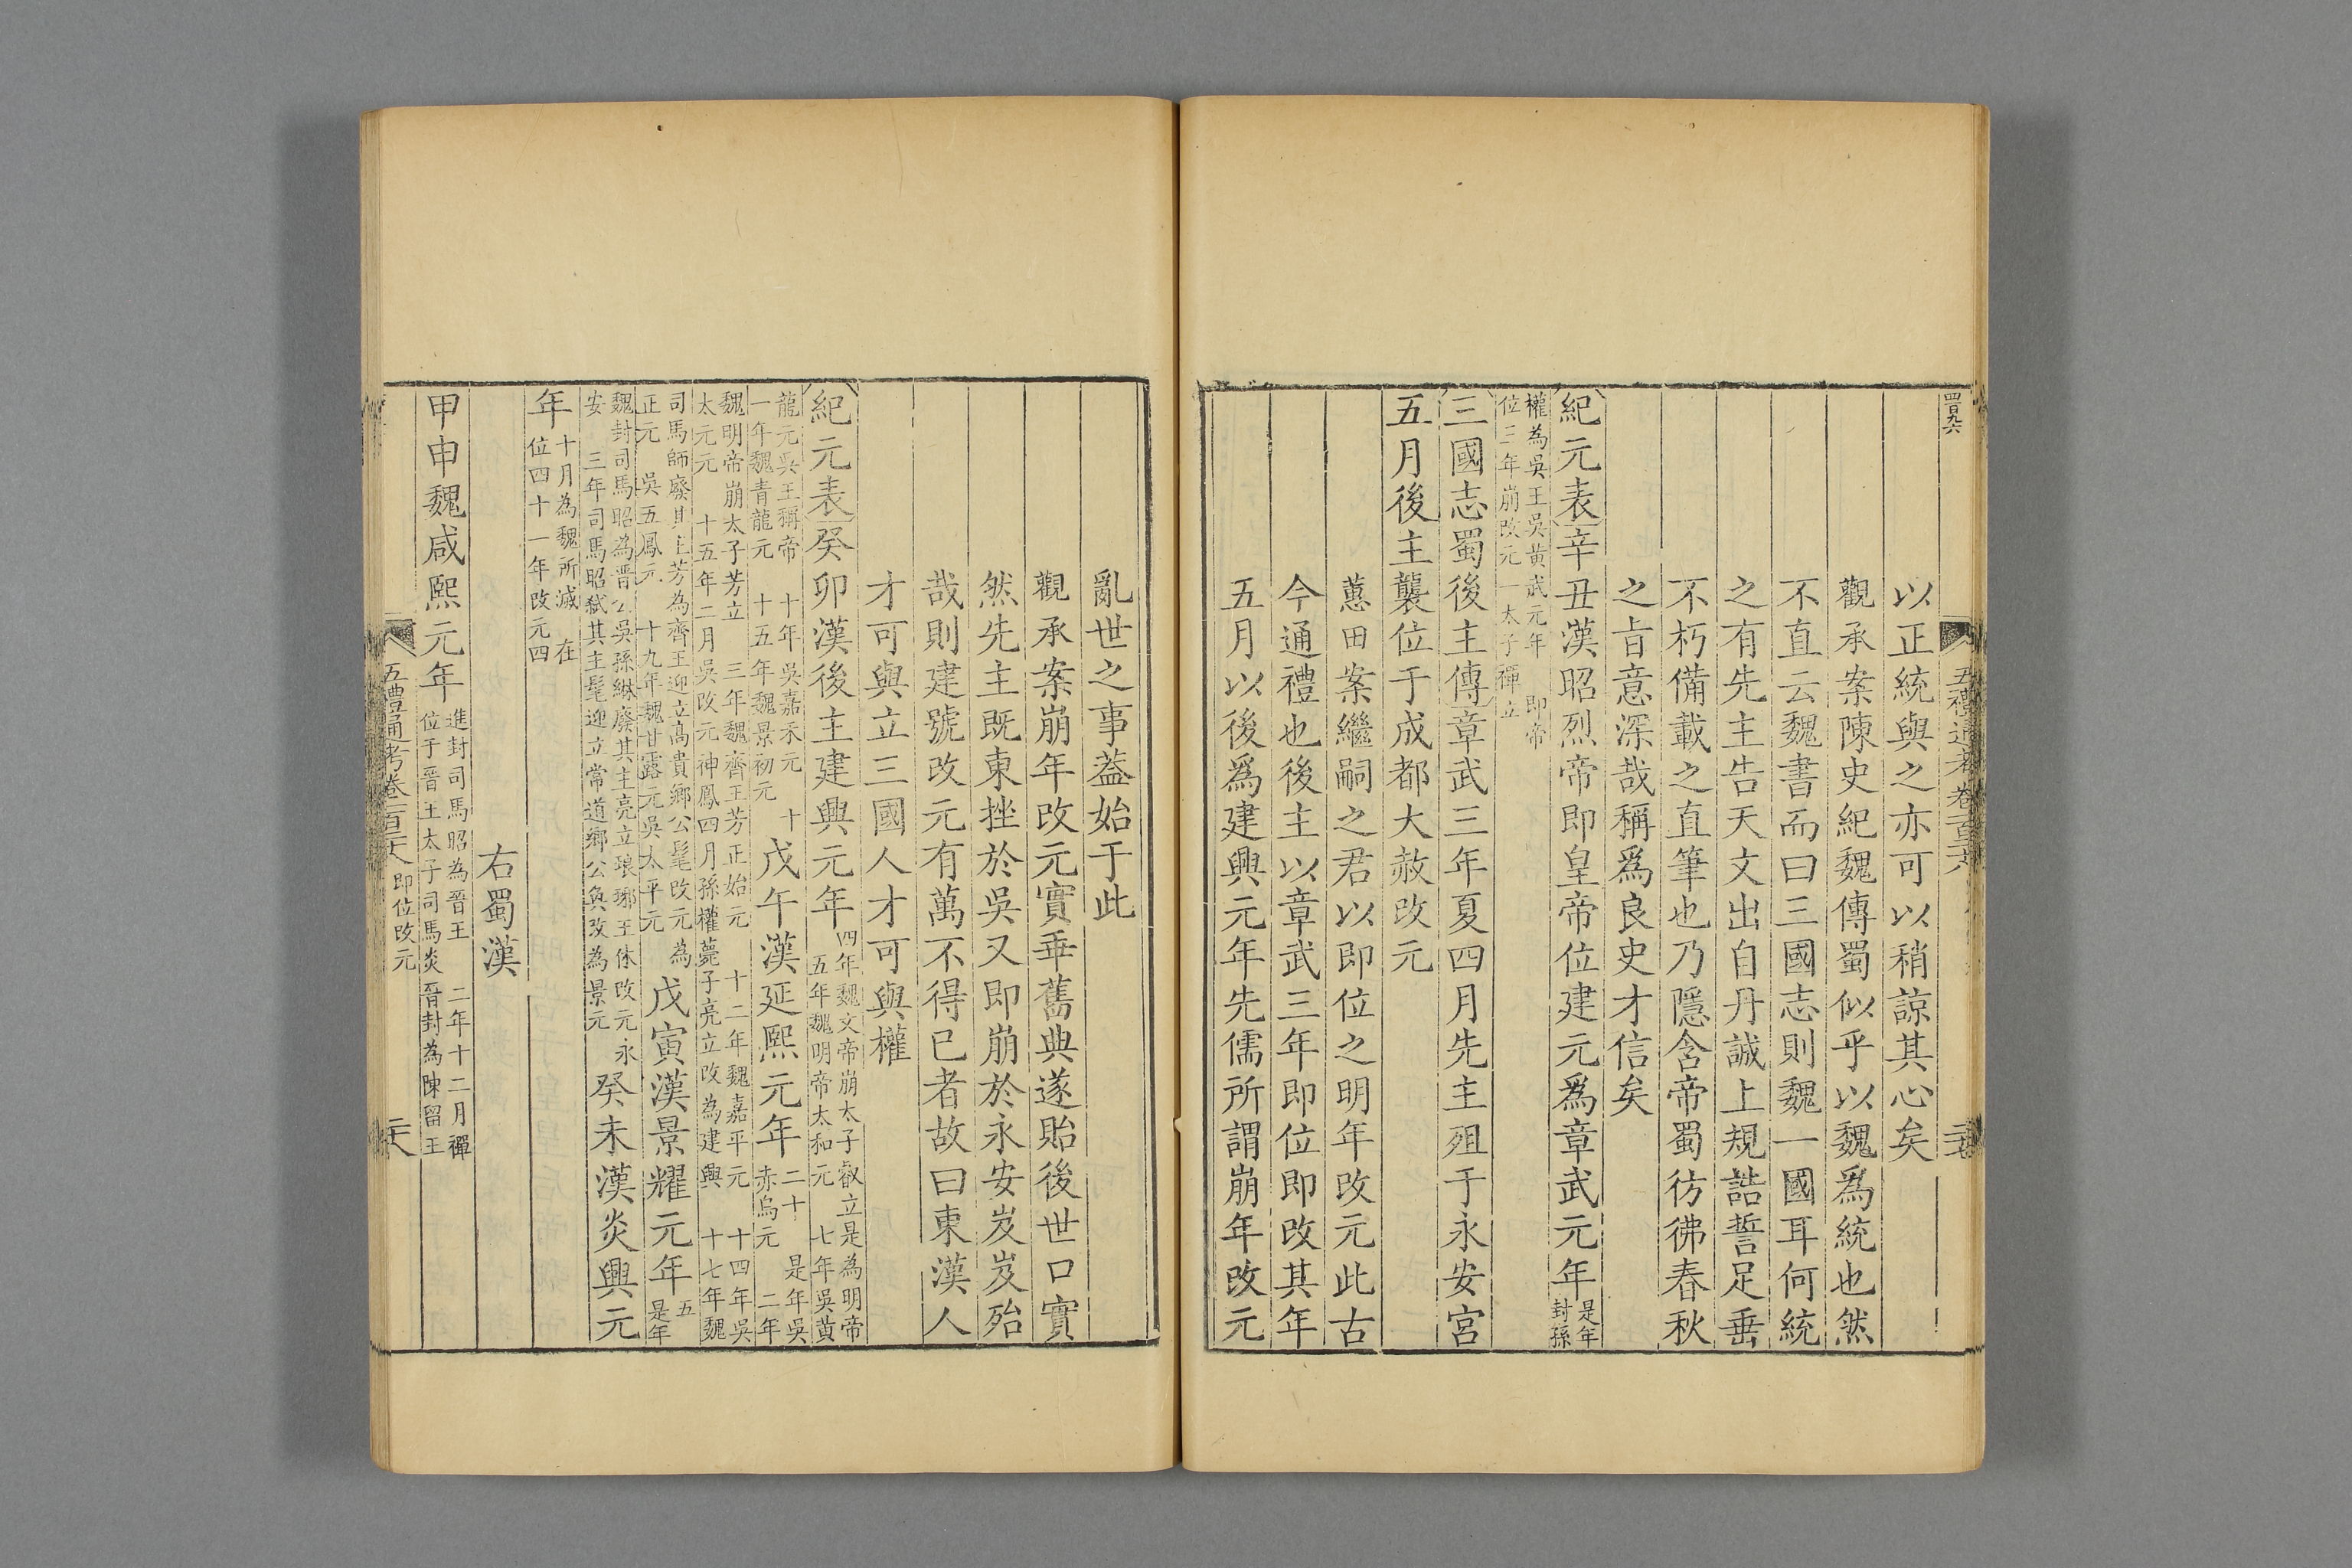 四百九六
五禮通考卷一百三十八
以正統與之亦可以稍諒其心矣
觀承案陳史紀魏傳蜀似乎以魏爲統也然
不直云魏書而曰三國志則魏一國耳何統
之有先主告天文出自丹誠上規誥誓足垂
不朽備載之直筆也乃隱含帝蜀彷彿春秋
之旨意深哉稱爲良史才信矣
紀元表辛丑漢昭烈帝即皇帝位建元爲章武元年是年封孫
權為吳王吳黃武元年 即帝
位三年崩改元一太子禪立
三國志蜀後主傳章武三年夏四月先主殂于永安宮
五月後主襲位于成都大赦改元
蕙田案繼嗣之君以即位之明年改元此古
今通禮也後主以章武三年即位即改其年
五月以後爲建興元年先儒所謂崩年改元
亂世之事葢始于此
觀承案崩年改元實乖舊典遂貽後世口實
然先主既東挫於吳又即崩於永安岌岌殆
哉則建號改元有萬不得已者故曰東漢人
才可與立三國人才可與權
紀元表癸卯漢後主建興元年
四年魏文帝崩太子叡立是為明帝
五年魏明帝太和元 七年吳黃
龍元吳王稱帝 十年吳嘉禾元 十
一年魏青龍元 十五年魏景初元
戊午漢延熙元年
二十 是年吳
赤烏元 二年
魏明帝崩太子芳立 三年魏齊王芳正始元 十二年魏嘉平元 十四年吳
太元元 十五年二月吳改元神鳳四月孫權薨子亮立改為建興 十七年魏
司馬師廢其主芳為齊王迎立高貴鄉公髦改元為
正元 吳五鳳元 十九年魏甘露元吳太平元
戊寅漢景耀元年
五
是年
魏封司馬昭為晋公吳孫綝廢其主亮立琅琊王休改元永
安 三年司馬昭弑其主髦迎立常道鄉公奐改為景元
癸未漢炎興元
年
十月為魏所滅 在
位四十一年改元四
右蜀漢
甲申魏咸熙元年
進封司馬昭為晋王 二年十二月禪
位于晋王太子司馬炎 晋封為陳留王
五禮通考卷一百三十八 即位改元